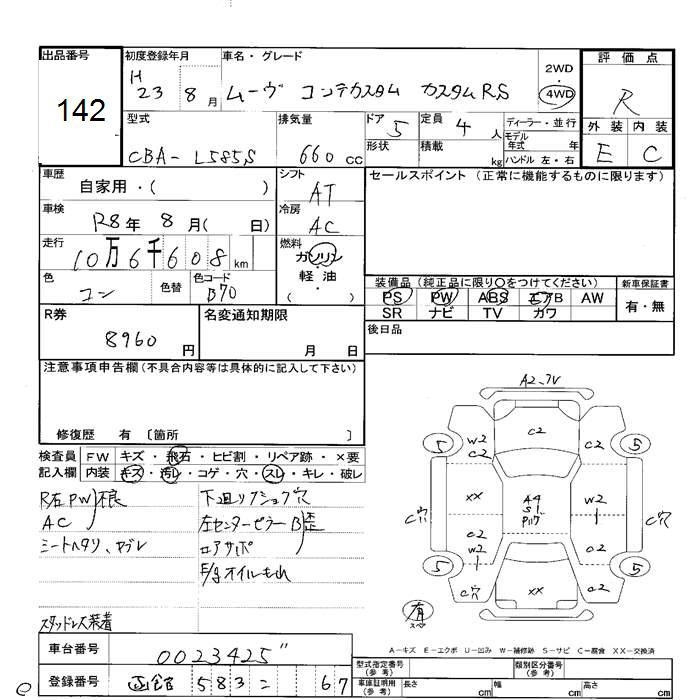 出品番号
142
初度登録年月
H 23 8月
車名・グレード
ムーヴ コンテカスタム カスタムRS
2WD
・
4WD
評価点
R
外装 内装
E C
型式
CBA- L585S
排気量
660 cc
ドア 5
形状
定員 4 人
積載 kg
ディーラー・並行
モデル
年式 年
ハンドル 左・右
車歴
自家用・( )
シフト
AT
車検
R8年 8月( 日)
冷房
AC
走行
10万6千608km
燃料
ガソリン
・
軽油
( )
色
コン
色替
色コード
B70
セールスポイント (正常に機能するものに限ります)
装備品 (純正品に限り〇をつけてください)
PS PW ABS エアB AW
SR ナビ TV カワ
新車保証書
有・無
後日品
R券
8960 円
名変通知期限
月 日
注意事項申告欄(不具合内容等は具体的に記入して下さい)
修復歴 有 〔箇所 〕
検査員
記入欄
FW キズ・飛石・ヒビ割・リペア跡・×要
内装 キズ・汚レ・コゲ・穴・スレ・キレ・破レ
R右PW 不良
AC
シートヘタリ、ヤブレ
スタッドレス装着
下廻リクショク穴
左センターピラーB歪
ロアサポ
E/gオイルもれ
A2、フV
C2
5 W2 C2
5
XX
A4
S1
W2
C穴
C穴
C2
W2
C2
5
5
C穴
XX
C2
有
スペア
A-キズ E-エクボ U-凹み W-補修跡 S-サビ C-腐食 XX-交換済
車台番号
0023425"
登録番号
函館 583 こ 67
型式指定番号
(参考)
類別区分番号
(参考)
車庫証明用
(参考)
長さ cm 幅 cm 高さ cm